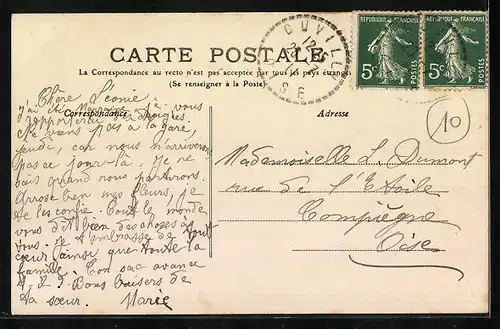 CUVILLY
RÉPUBLIQUE FRANÇAISE
5c
RÉPUBLIQUE FRANÇAISE
5c
CARTE POSTALE
La Correspondance au recto n'est pas acceptée par tous les pays étrangers
(Se renseigner à la Poste)
Correspondance
Adresse
10
Chère Léonie
vous
Ne viens pas à la gare,
jeudi, car nous n'arriverons
pas ce jour-là. Je ne
sais quand nous partirons.
Arrose bien mes fleurs, je
te les confie. Tout le monde
vous dit bien des choses à
tous. Je t'embrasse de tout
cœur ainsi que toute la
famille. Ton sac avance
Bons baisers de
ta sœur. Marie
Mademoiselle L. Dumont
rue de l'Etoile
Compiègne
Oise